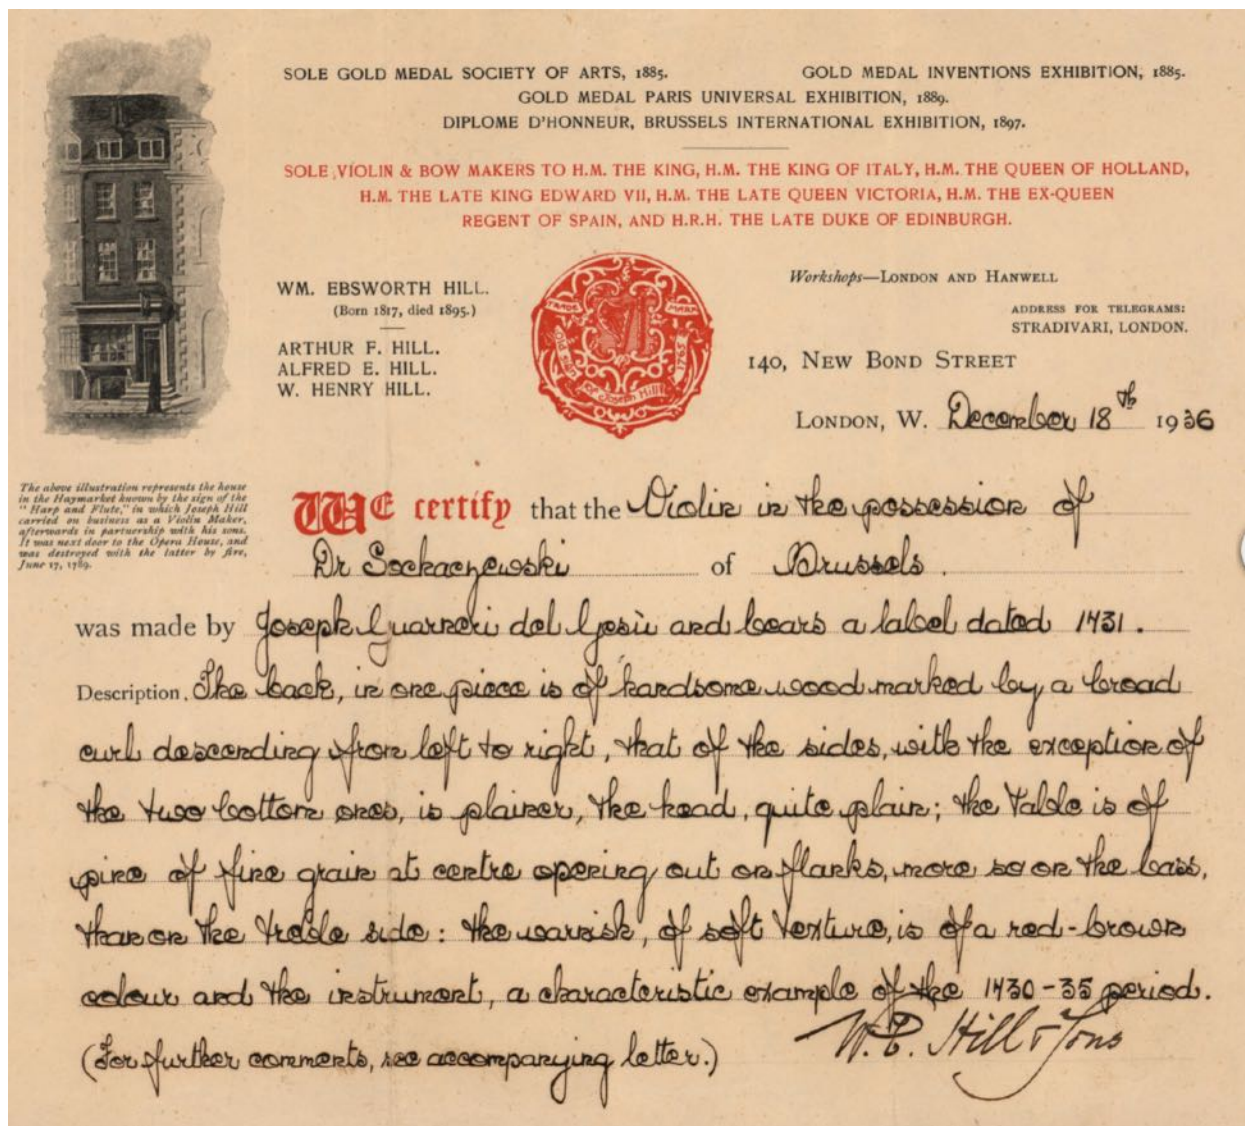 SOLE GOLD MEDAL SOCIETY OF ARTS, 1885. GOLD MEDAL INVENTIONS EXHIBITION, 1885.
GOLD MEDAL PARIS UNIVERSAL EXHIBITION, 1889.
DIPLOME D'HONNEUR, BRUSSELS INTERNATIONAL EXHIBITION, 1897.
SOLE VIOLIN & BOW MAKERS TO H.M. THE KING, H.M. THE KING OF ITALY, H.M. THE QUEEN OF HOLLAND,
H.M. THE LATE KING EDWARD VII, H.M. THE LATE QUEEN VICTORIA, H.M. THE EX-QUEEN
REGENT OF SPAIN, AND H.R.H. THE LATE DUKE OF EDINBURGH.
WM. EBSWORTH HILL.
(Born 1817, died 1895.)
ARTHUR F. HILL.
ALFRED E. HILL.
W. HENRY HILL.
TRADE MARK
of Joseph Hill 1765
Workshops—LONDON AND HANWELL
ADDRESS FOR TELEGRAMS:
STRADIVARI, LONDON.
140, NEW BOND STREET
LONDON, W. December 18th 1936
The above illustration represents the house
in the Haymarket known by the sign of the
"Harp and Flute," in which Joseph Hill
carried on business as a Violin Maker,
afterwards in partnership with his sons.
It was next door to the Opera House, and
was destroyed with the latter by fire,
June 17, 1789.
WE certify that the Violin in the possession of
Dr Sochaczewski of Brussels.
was made by Joseph Guarneri del Gesù and bears a label dated 1731.
Description. The back, in one piece is of handsome wood marked by a broad
curl descending from left to right, that of the sides, with the exception of
the two bottom ones, is plainer, the head, quite plain; the table is of
pine of fine grain at centre opening out on flanks, more so on the bass,
than on the treble side: the varnish, of soft texture, is of a red-brown
colour and the instrument, a characteristic example of the 1730-35 period.
(For further comments, see accompanying letter.)
W.E. Hill & Sons